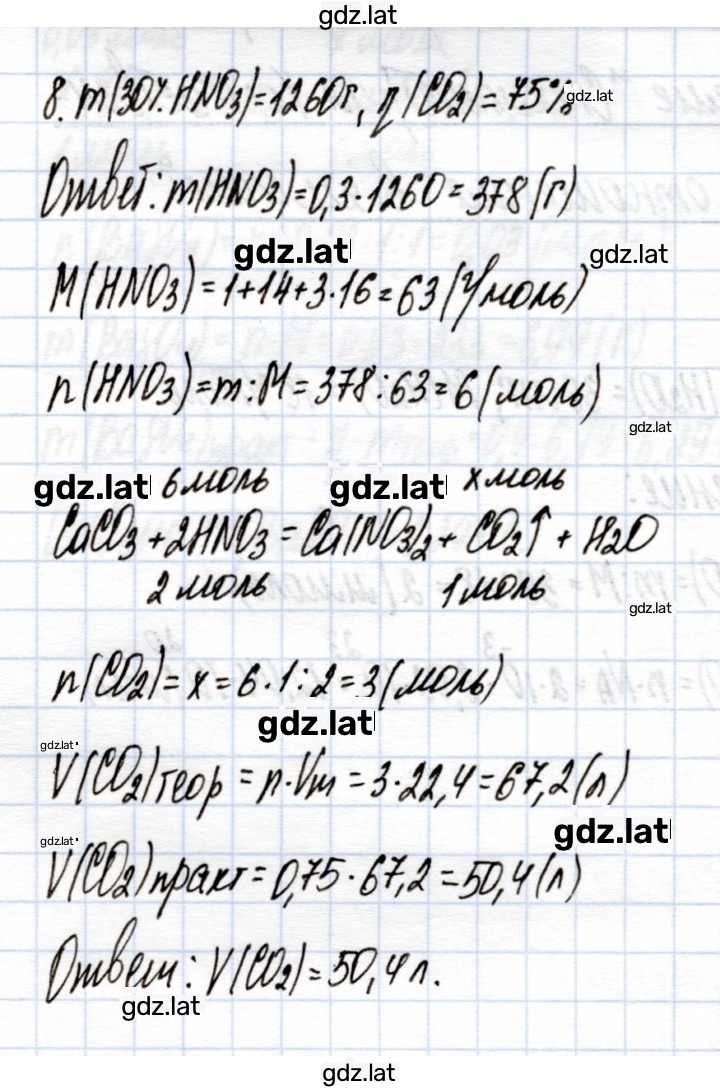 gdz.lat
8. m(30% HNO3)=1260г, η(CO2)=75%
gdz.lat
Ответ: m(HNO3)=0,3·1260=378(г)
gdz.lat
gdz.lat
M(HNO3)=1+14+3·16=63(г/моль)
n(HNO3)=m:M=378:63=6(моль)
gdz.lat
gdz.lat 6 моль gdz.lat x моль
CaCO3+2HNO3=Ca(NO3)2+CO2↑+H2O
2 моль 1 моль
gdz.lat
n(CO2)=x=6·1:2=3(моль)
gdz.lat
gdz.lat
V(CO2)теор=n·Vm=3·22,4=67,2(л)
gdz.lat
gdz.lat
V(CO2)практ=0,75·67,2=50,4(л)
Ответ: V(CO2)=50,4л.
gdz.lat
gdz.lat